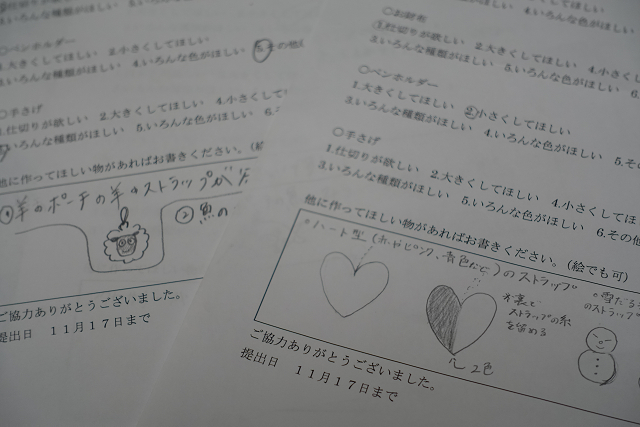 ○ペンホルダー
1.仕切りが欲しい 2.小さくしてほしい
3.いろんな種類がほしい 4.いろんな色がほしい 5.その他
○手さげ
1.仕切りが欲しい 2.大きくしてほしい 4.小さくして
いろんな種類がほしい 5.いろんな色がほしい 6.
他に作ってほしい物があればお書きください。(絵
① 羊のポーチの羊のストラップが
② 魚の
ご協力ありがとうございました。
提出日 11月17日まで
○お財布
①仕切りが欲しい 2.大きくしてほしい 4.小さく
3.いろんな種類がほしい 5.いろんな色がほしい
○ペンホルダー
1.大きくしてほしい ②小さくしてほしい
3.いろんな種類がほしい 4.いろんな色がほしい 5.その
○手さげ
1.仕切りが欲しい 2.大きくしてほしい 4.小さくしてほ
3.いろんな種類がほしい 5.いろんな色がほしい 6.その他
他に作ってほしい物があればお書きください。(絵でも可)
・ハート型(赤、ピンク、青色など)のストラップ
2色
裏と
ストラップの糸
を留める
・雪だるま
のストラップ
ご協力ありがとうございました。
提出日 11月17日まで